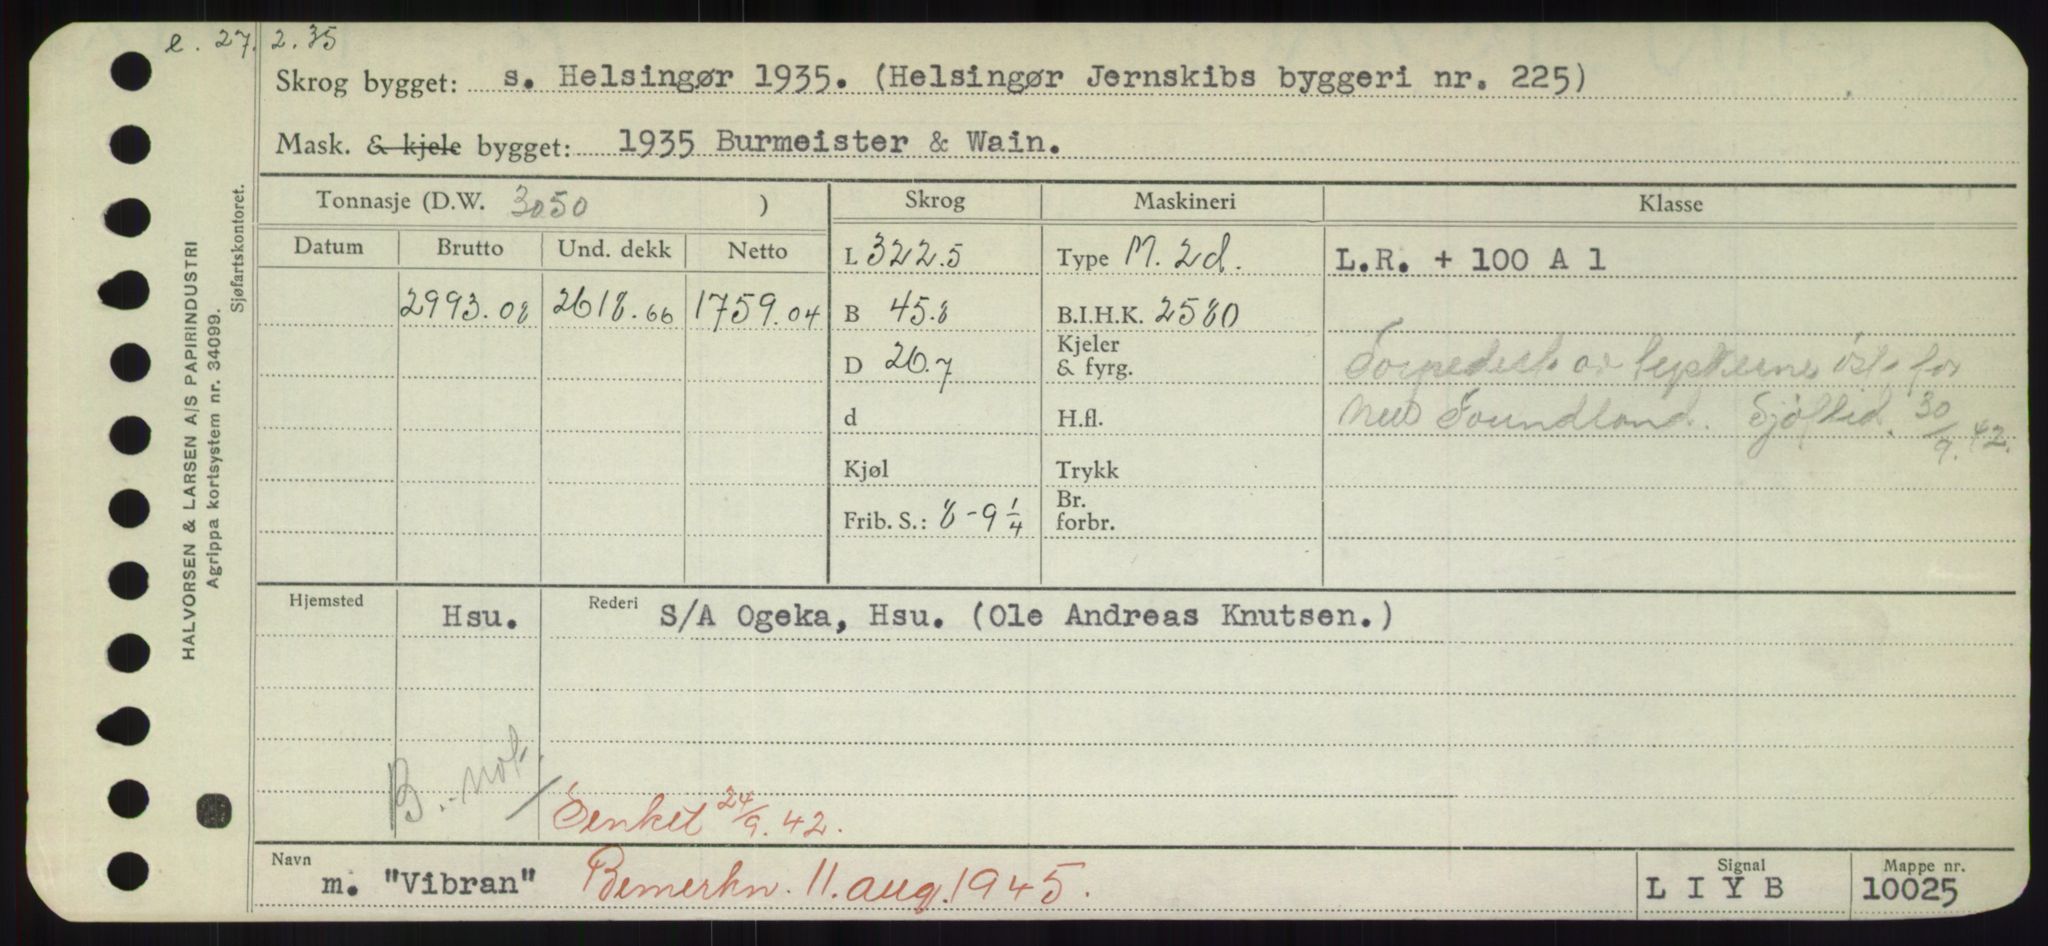 e. 27.2.35
Skrog bygget: s. Helsingør 1935. (Helsingør Jernskibs byggeri nr. 225)
Mask. & kjele bygget: 1935 Burmeister & Wain.
Tonnasje (D.W. 3050 )
Skrog
Maskineri
Klasse
Datum Brutto Und. dekk Netto
L 322.5
Type M. 2d.
L.R. + 100 A 1
2993.08 2618.66 1759.04
B 45.8
B.I.H.K. 2580
D 26.7
Kjeler
& fyrg.
Torpedert av tyskerne øst for
d
H.fl.
New Foundland. Sjøfkl. 30/9.42.
Kjøl
Trykk
Frib. S.: 8-9 1/4
Br.
forbr.
Hjemsted Hsu. Rederi S/A Ogeka, Hsu. (Ole Andreas Knutsen.)
B.-not.
Senket 24/9.42.
Navn m. "Vibran" Bemerkn. 11. aug. 1945.
Signal L I Y B
Mappe nr. 10025
HALVORSEN & LARSEN A/S PAPIRINDUSTRI
Agrippa kortsystem nr. 34099.
Sjøfartskontoret.